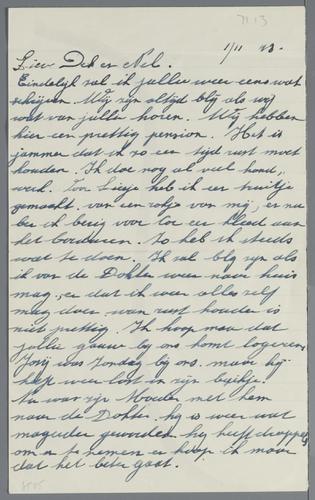 71 13
1/11 43.
Lieve Dick en Nel.
Eindelijk zal ik jullie weer eens wat
schrijven. Wij zijn altijd blij als wij
wat van jullie horen. Wij hebben
hier een prettig pension. Het is
jammer dat ik zo een tijd rust moet
houden. Ik doe nog al veel hand„
werk. Voor heb ik een truitje
gemaakt. van een rokje van mij, en nu
ben ik bezig voor Cor een kleed aan
het borduren. zo heb ik steeds
wat te doen. Ik zal blij zijn als
ik van de Dokter weer naar huis
mag, en dat ik weer alles zelf
mag doen want rust houden is
niets prettig. Ik hoop maar dat
jullie gauw bij ons komt logeren
was Zondag bij ons. maar hij
heeft weer last in zijn buikje.
Nu was zijn Moeder met hem
naar de Dokter. hij is weer wat
magerder geworden hij heeft drappels
om in te nemen en hoop ik maar
dat het beter gaat.